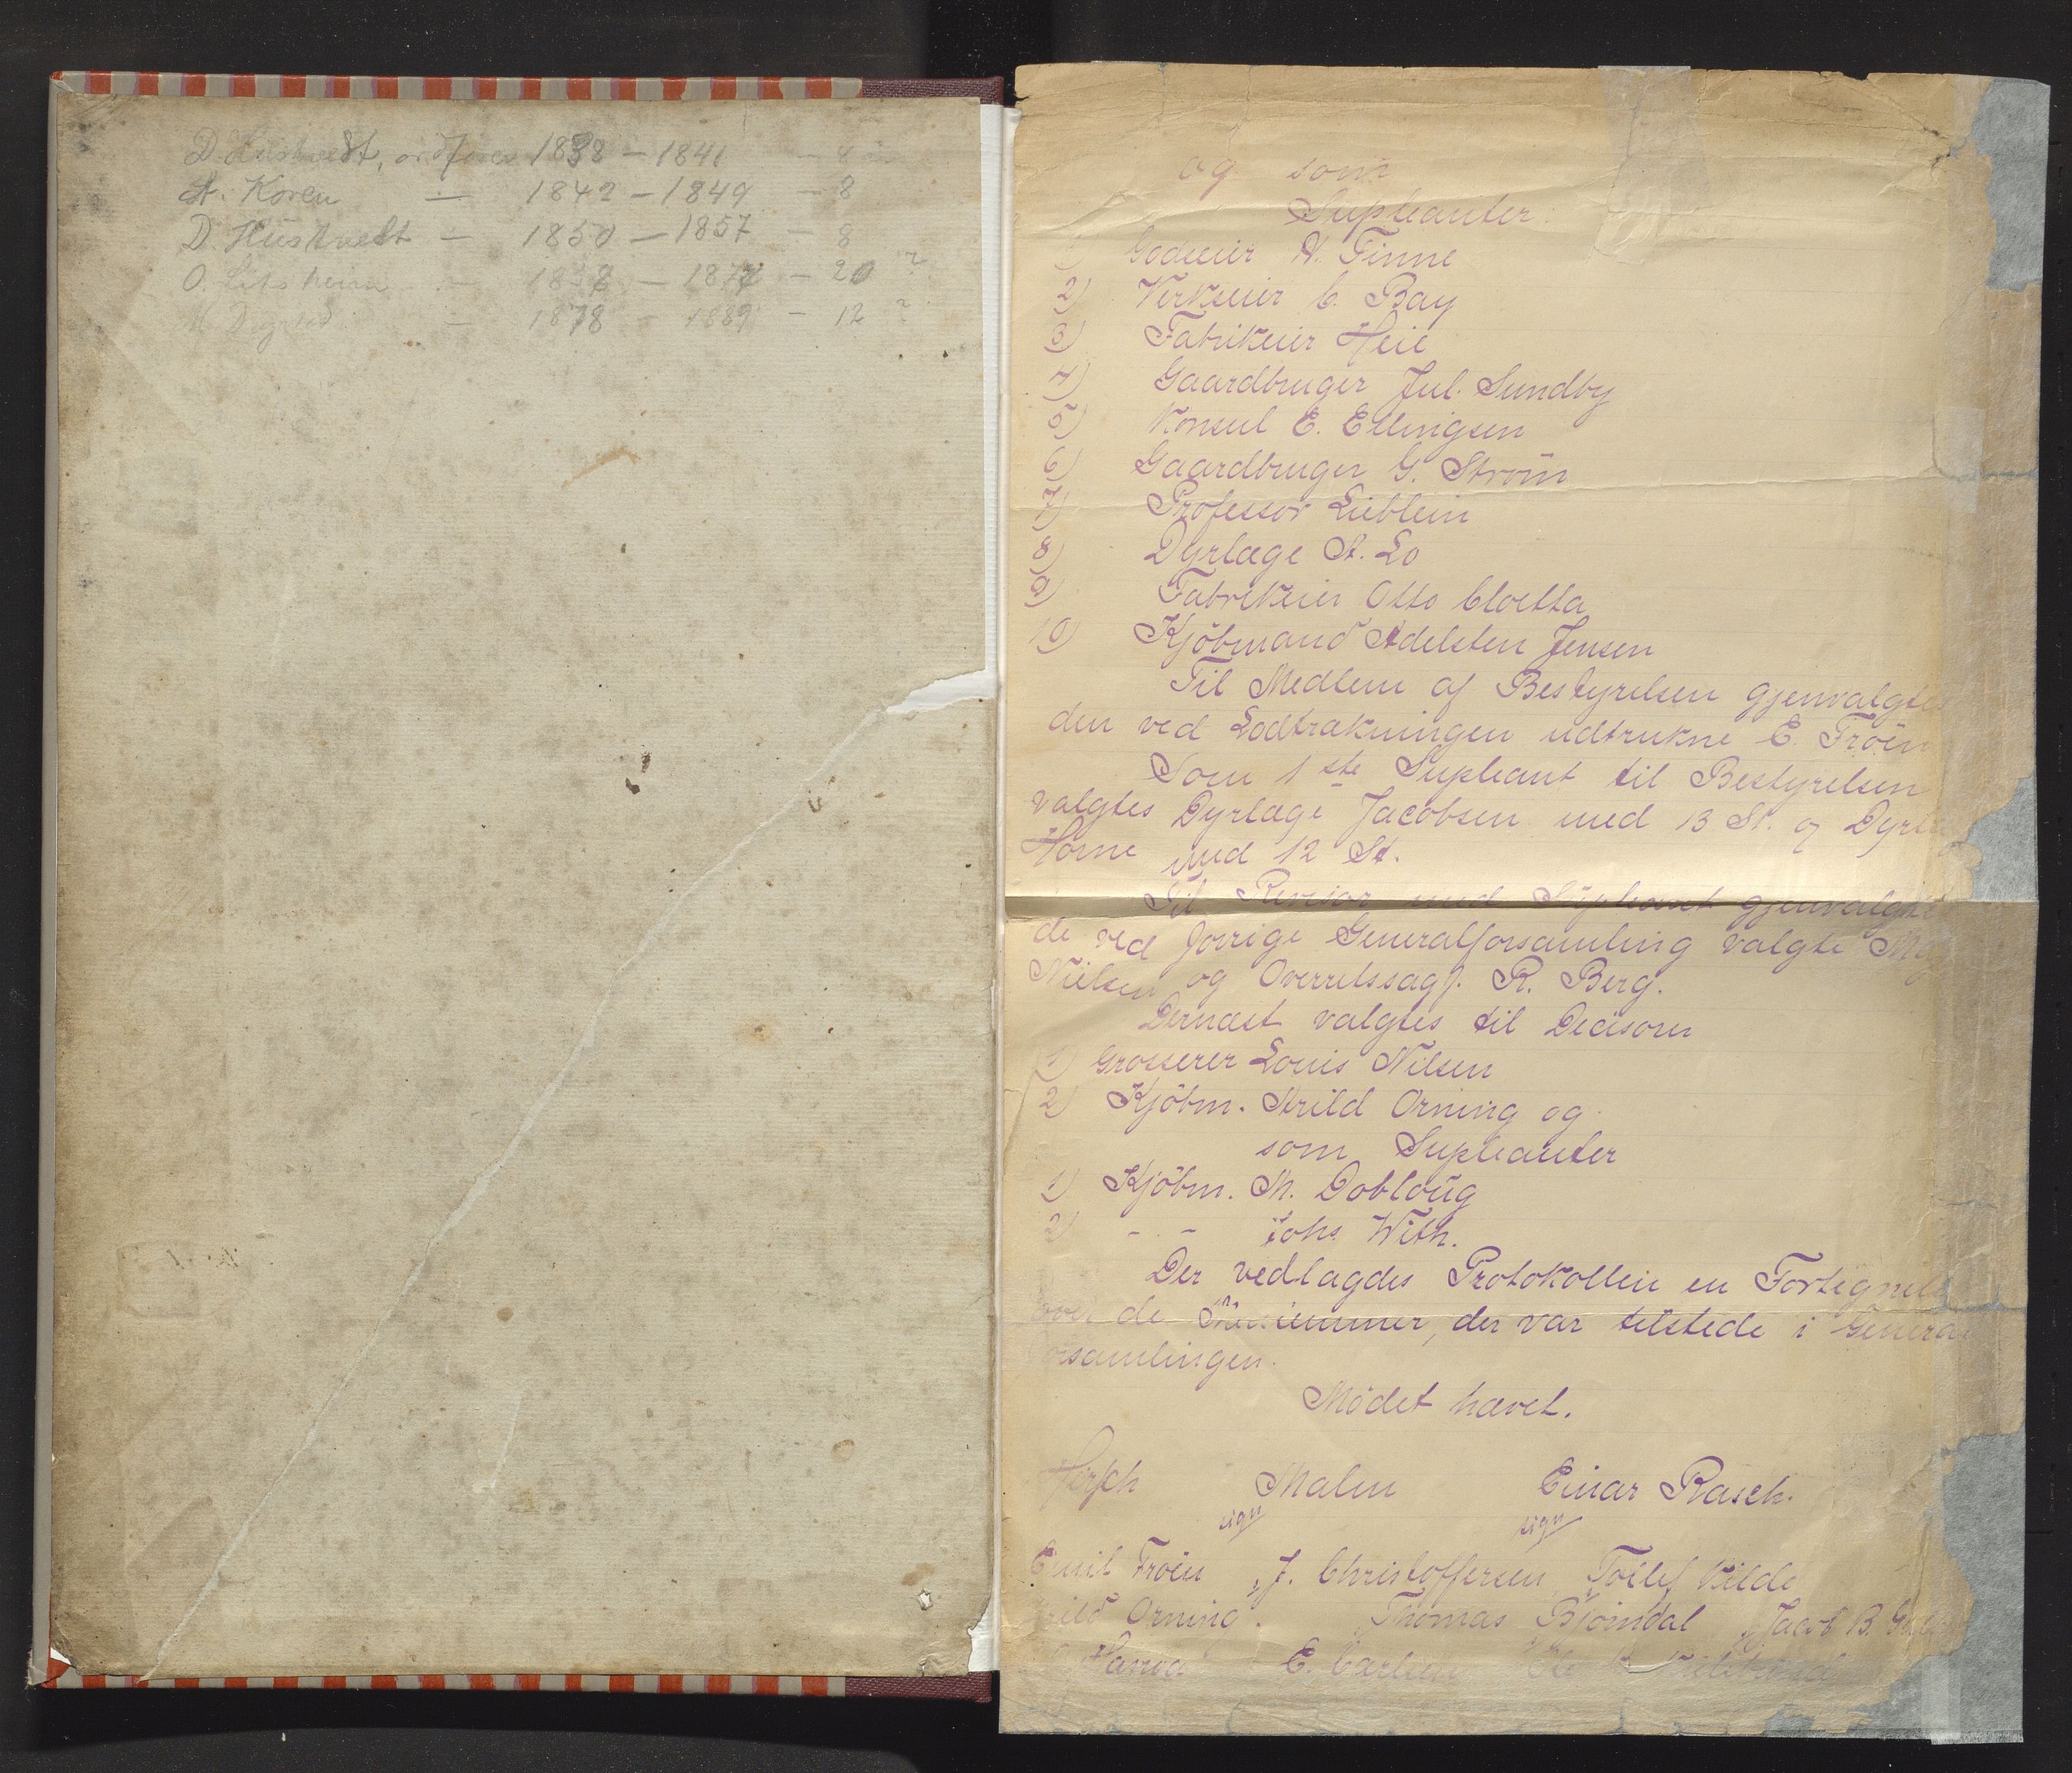 D. Hustvedt, ordfører 1838 – 1841 – 4
A. Koren — 1842 – 1849 – 8
D. Hustvedt — 1850 – 1857 – 8
O. – 1877 – 20 ?
M. — 1878 – 1889 – 12 ?
og som
Supleanter.
1) Godseier A. Finne
2) Verkseier C. Bay
3) Fabrikeier Heie
4) Gaardbruger Jul. Sundby
5) Konsul E. Ellingsen
6) Gaardbruger G. Strøm
7) Professor Lieblein
8) Dyrlæge St. Lo
9) Fabrikeier Otto Cloetta
10) Kjöbmand Adelsten Jensen
Til Medlem af Bestyrelsen gjenvalgtes
den ved Lodtrækningen udtrukne E. Fröen
Som 1ste Supleant til Bestyrelsen
valgtes Dyrlæge Jacobsen med 13 St. og
Horne med 12 St.
Til Revisor med Supleant gjenvalgtes
de ved forrige Generalforsamling valgte
Nielsen og Overretssagf. R. Berg.
Dernæst valgtes til Decisorer
1) Grosserer Louis Nilsen
2) Kjöbm. Arild Orning og
som Supleanter
1) Kjöbm. Th. Dobloug
2) - - Johs. With.
Der vedlagdes Protokollen en
over de der var tilstede i
forsamlingen.
Mödet hævet.
Hirsch Malm Einar Rasch.
sign sign
Emil Fröen J. Christoffersen Tollef Kilde
Arild Orning. Thomas Bjørndal Jacob B.
E. Carlsen